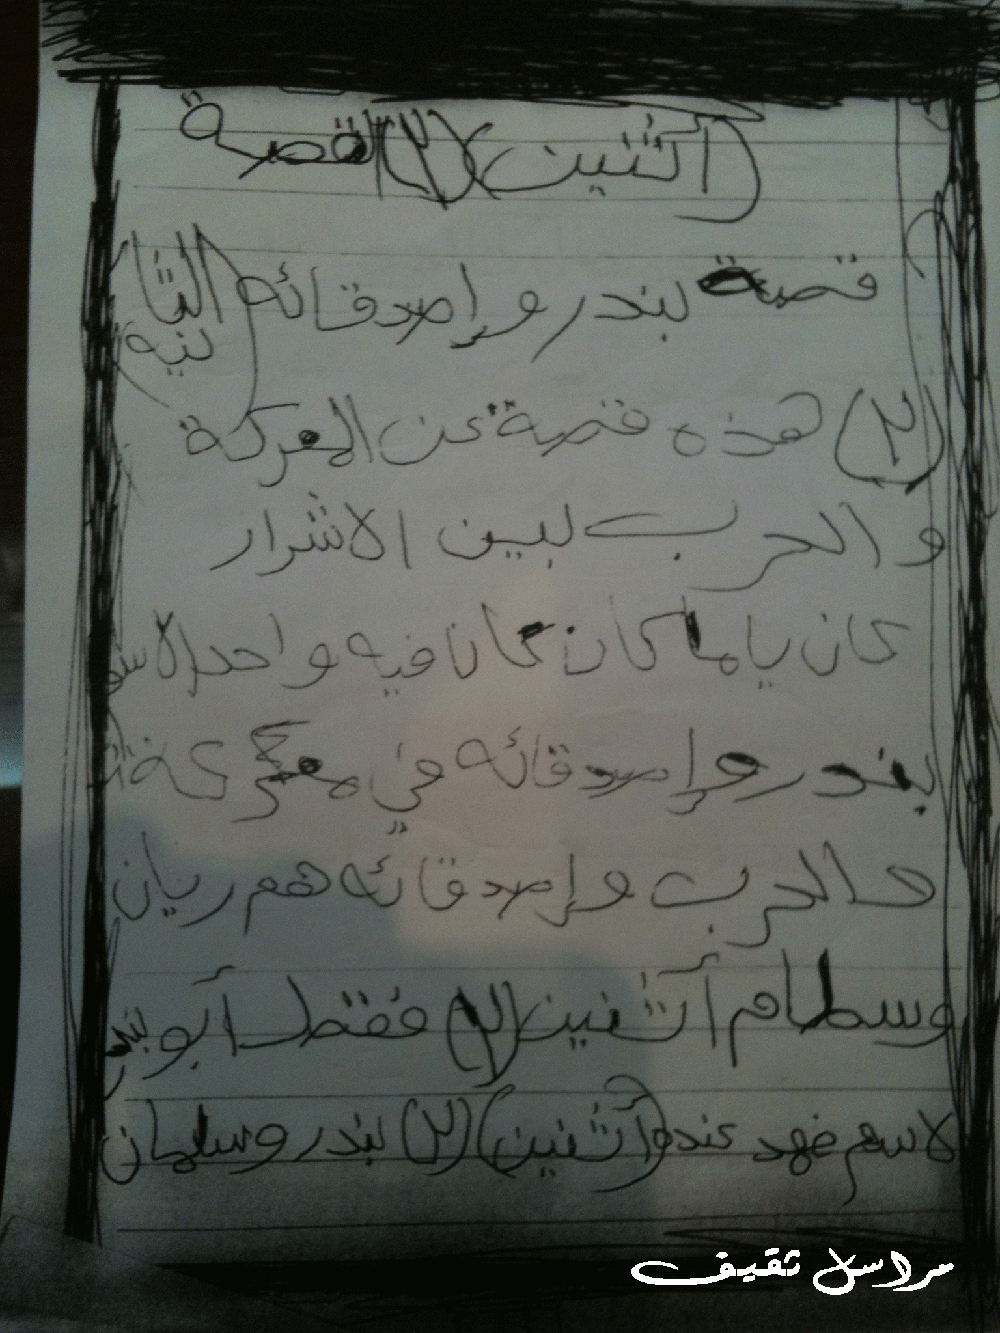 (أثنين) (٢) القصة
قصة بندر وإصدقائه (الثا
نيه)
(٢) هذه قصة عن المعركة
والحرب لبين الاشرار
كان ياما كان كان فيه واحد الاسم
بندر وإصدقائه في معركة
الحرب وإصدقائه هم ريان
وسطام أثنين (٢) فقط أبو بندر
لاسم فهد عنده (أثنين) (٢) بندر وسلمان
مراسل ثقيف